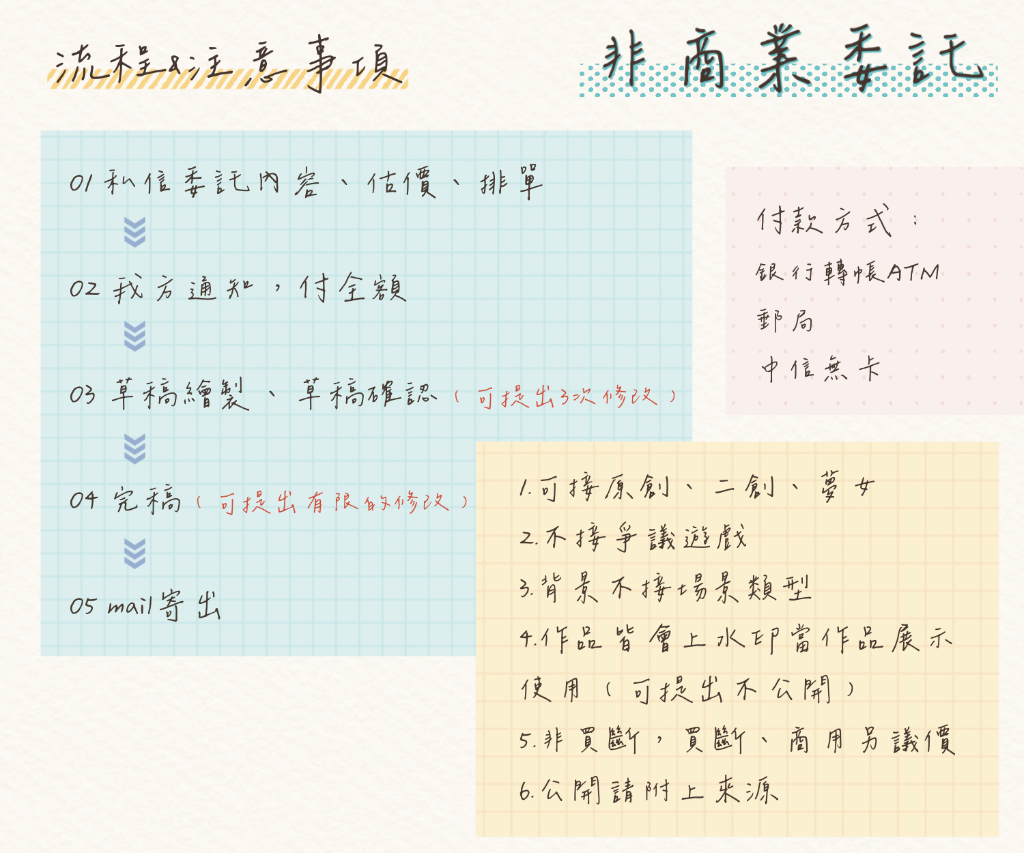 流程&注意事項
非商業委託
01 私信委託內容、估價、排單
02 我方通知，付全額
03 草稿繪製、草稿確認（可提出3次修改）
04 完稿（可提出有限的修改）
05 mail寄出
付款方式：
銀行轉帳ATM
郵局
中信無卡
1.可接原創、二創、夢女
2.不接爭議遊戲
3.背景不接場景類型
4.作品皆會上水印當作品展示
使用（可提出不公開）
5.非買斷，買斷、商用另議價
6.公開請附上來源